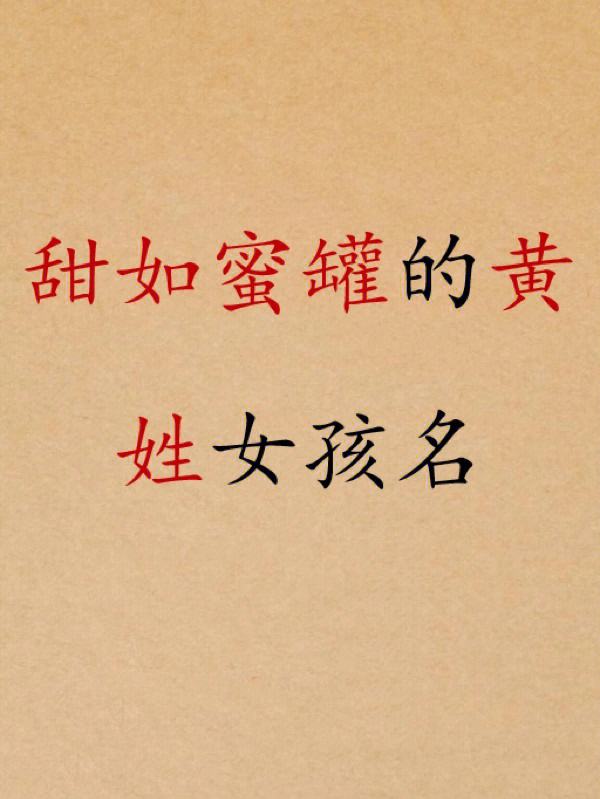 甜如蜜罐的黄
姓女孩名